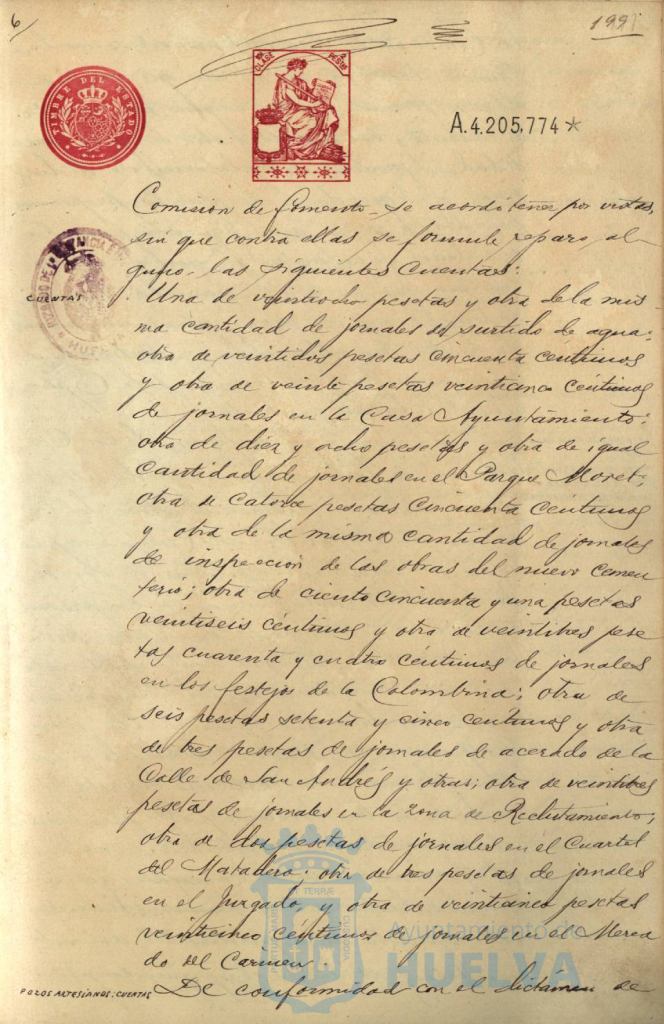 6
199
TIMBRE DEL ESTADO
11ª CLASE 2 PESETAS
A.4.205,774*
Comision de fomento_ se acordó tener por vistas,
sin que contra ellas se formule reparo al
guno, las siguientes Cuentas:
CUENTAS
HUELVA
Una de veintiocho pesetas y otra de la mis
ma cantidad de jornales de surtido de agua:
otra de veintidos pesetas cincuenta centimos
y otra de veinte pesetas veinticinco céntimos
de jornales en la Casa Ayuntamiento:
otra de diez y ocho pesetas y otra de igual
cantidad de jornales en el Parque Moret;
otra de catorce pesetas cincuenta centimos
y otra de la misma cantidad de jornales
de inspección de las obras del nuevo Cemen
terio; otra de ciento cincuenta y una pesetas
veintiseis céntimos y otra de veintitres pese
tas cuarenta y cuatro céntimos de jornales
en los festejos de la Colombina; otra de
seis pesetas setenta y cinco centimos y otra
de tres pesetas de jornales de acerado de la
Calle de San Andrés y otras; otra de veintitres
pesetas de jornales en la zona de Reclutamiento;
otra de dos pesetas de jornales en el Cuartel
del Matadero: otra de tres pesetas de jornales
en el Juzgado y otra de veinticinco pesetas
veinticinco céntimos de jornales en el Merca
do del Carmen.
POZOS ARTESIANOS: CUENTAS
De conformidad con el dictámen de
Ayuntamiento de
HUELVA